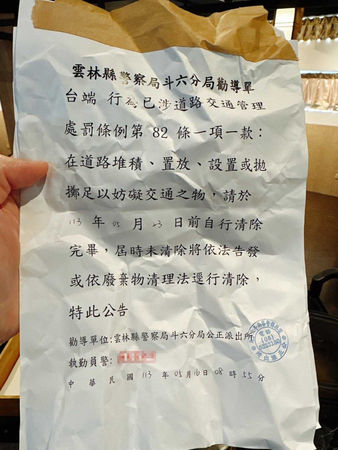 雲林縣警察局斗六分局勸導單
台端 行為已涉道路交通管理
處罰條例第 82 條一項一款：
在道路堆積、置放、設置或拋
擲足以妨礙交通之物，請於
113 年 05 月 23 日前自行清除
完畢，屆時未清除將依法告發
或依廢棄物清理法逕行清除，
特此公告
勸導單位:雲林縣警察局斗六分局公正派出所
執勤員警:
中 華 民 國 113 年 05 月 16 日 08 時 55 分